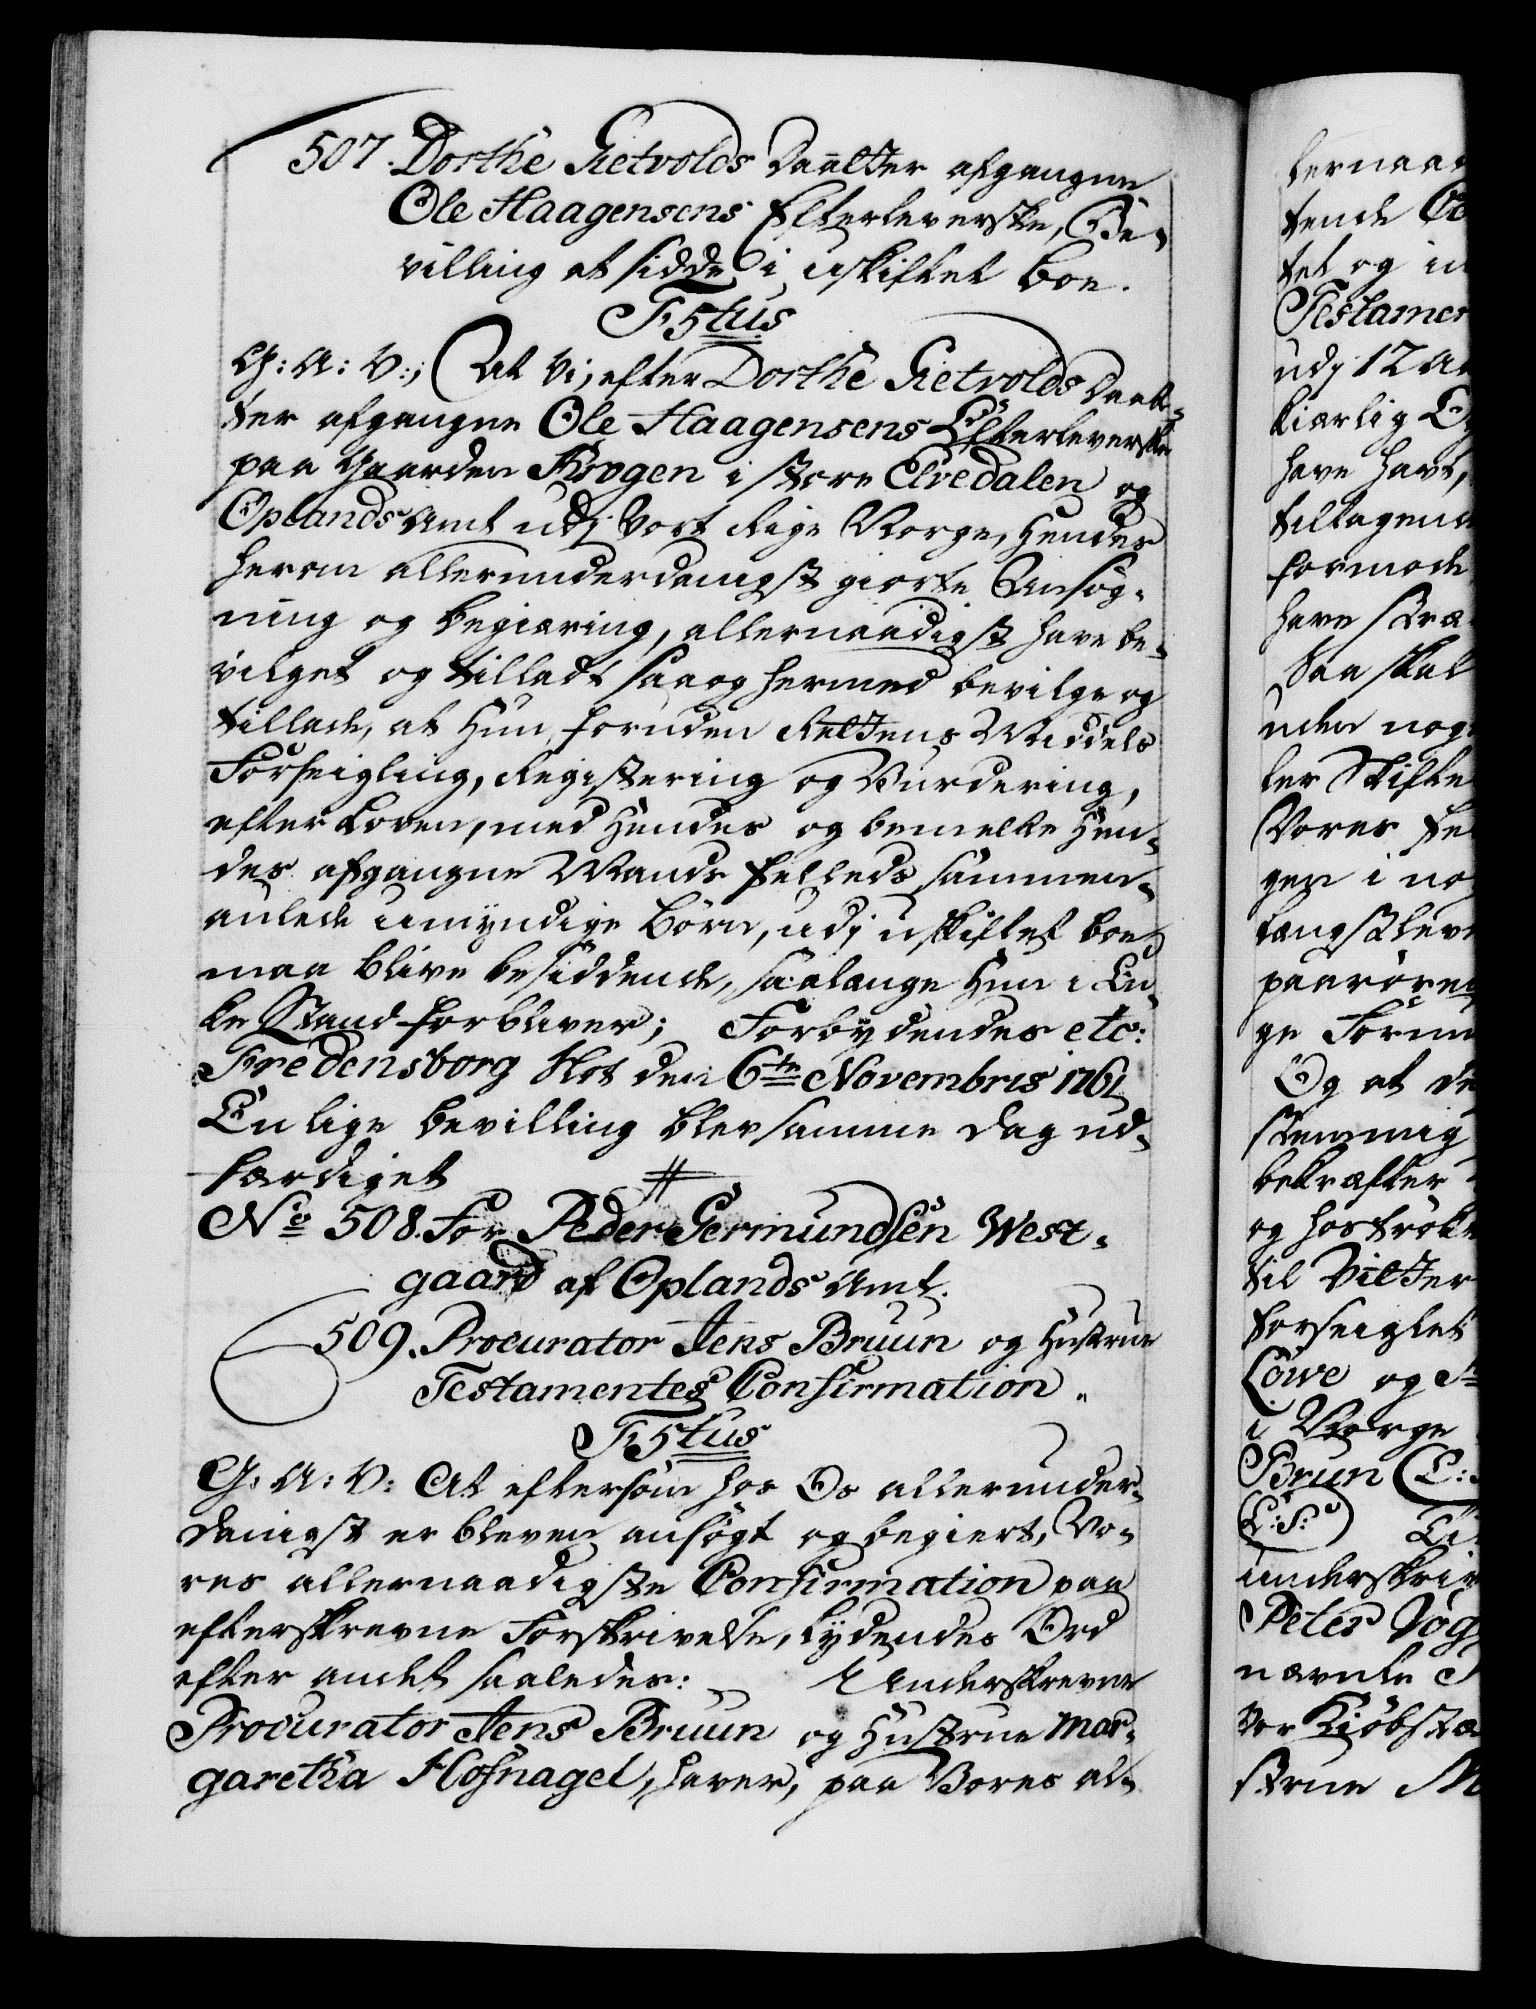 507. Dorthe Ketvolds Daatter afgangne
Ole Haagensens Efterleverske, Be-
villing at sidde i uskiftet Boe.
F 5tus
G: A: V:, At Vi, efter Dorthe Ketvolds Daat-
ter afgangne Ole Haagensens Efterleverske
paa Gaarden Krogen i store Elvedalen og
Oplands Amt udj Vort Rige Norge, Hendes
herom allerunderdanigst giorte Ansøg-
ning og begiæring, allernaadigst have be-
vilget og tilladt saa og hermed bevilge og
tillade, at Hun, foruden Rettens Middels
Forseigling, Registering og Vurdering,
efter Loven, med Hendes og bemelte Hen-
des afgangne Mands fælleds sammen-
aulede umyndige Børn, udj uskiftet boe
maa blive besiddende, saalænge Hun i En-
ke Stand forbliver; Forbydendes etc:
Fredensborg Slot den 6te Novembris 1761
En lige bevilling blev samme Dag ud-
færdiget
No 508. For Peder Germundsen West-
gaard af Oplands Amt.
509. Procurator Jens Bruun og Hustrue
Testamentes Confirmation.
F 5tus
G: A: V: At eftersom hos Os allerunder-
danigst er bleven ansøgt og begiert, Vo-
res allernaadigste Confirmation paa
efterskrevne Forskrivelse, lydendes Ord
efter andet saaledes: Underskrevne
Procurator Jens Bruun og Hustrue Mar-
garetha Hofnagel, haver, paa Vores al-
tende
tet og in
Testamen
udj 12
kierlig
have havt,
tiltagend
formode
have
Saa skal
uden nog
ler Skifte
Vores
ger i no
længstlev
paarøren
ge Form
Og at de
stemmig
bekræfter
og hostrøk
til Vitter
forseiglet
Löwe og
i Norge
Brun (L:
L:S:
underskriv
Peter Vog
nævnte
Vor Kiöbstæ
strue M